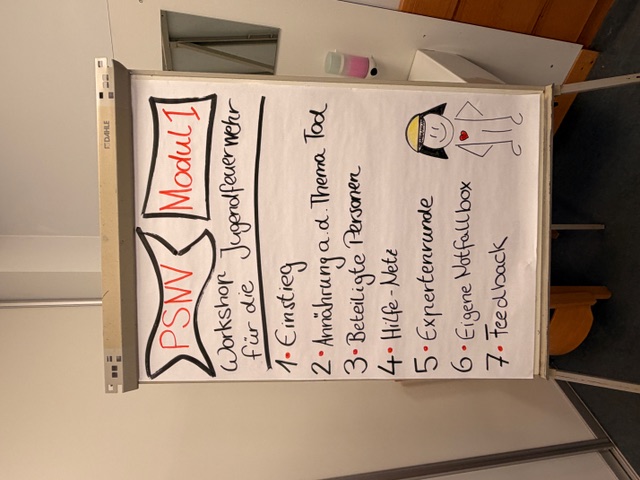 DAHLE
PSNV Modul 1
Workshop
für die Jugendfeuerwehr
1. Einstieg
2. Annährung a.d. Thema Tod
3. Beteiligte Personen
4. Hilfe-Netz
5. Expertenrunde
6. Eigene Notfallbox
7. Feedback